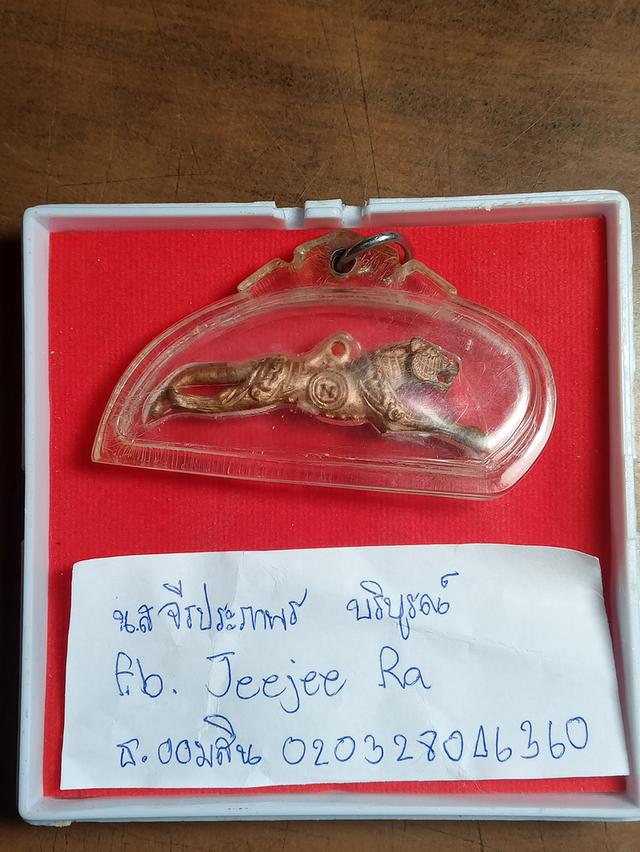 น.ส จีรประภาพร บริบูรณ์
f.b. Jeejee Ra
ธ.ออมสิน 020328046360